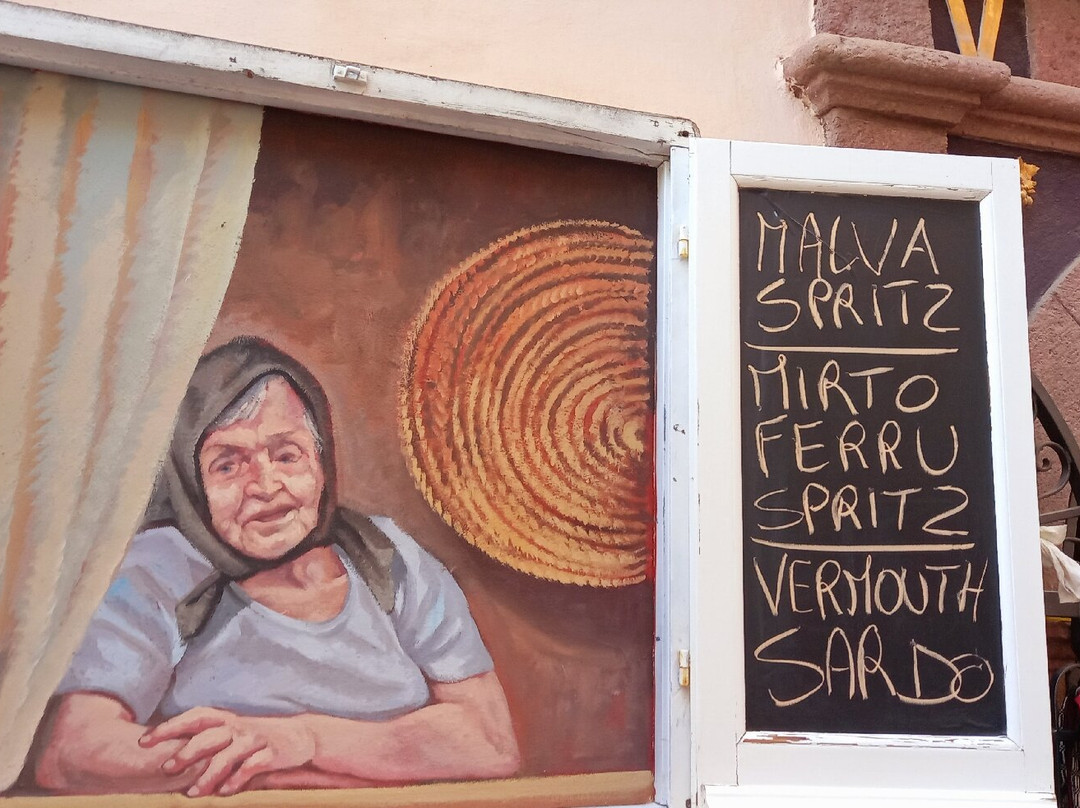 MALVA
SPRITZ
MIRTO
FERRU
SPRITZ
VERMOUTH
SARDO